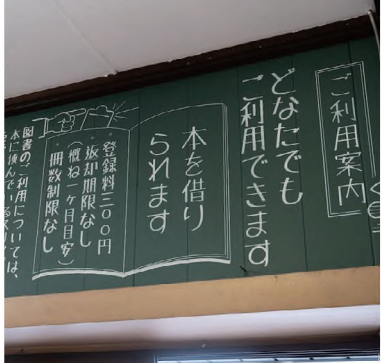 ご利用案内
どなたでも
ご利用できます
本を借り
られます
登録料三〇〇円
返却期限なし
(概ね一ヶ月目安)
冊数制限なし
図書のご利用については、